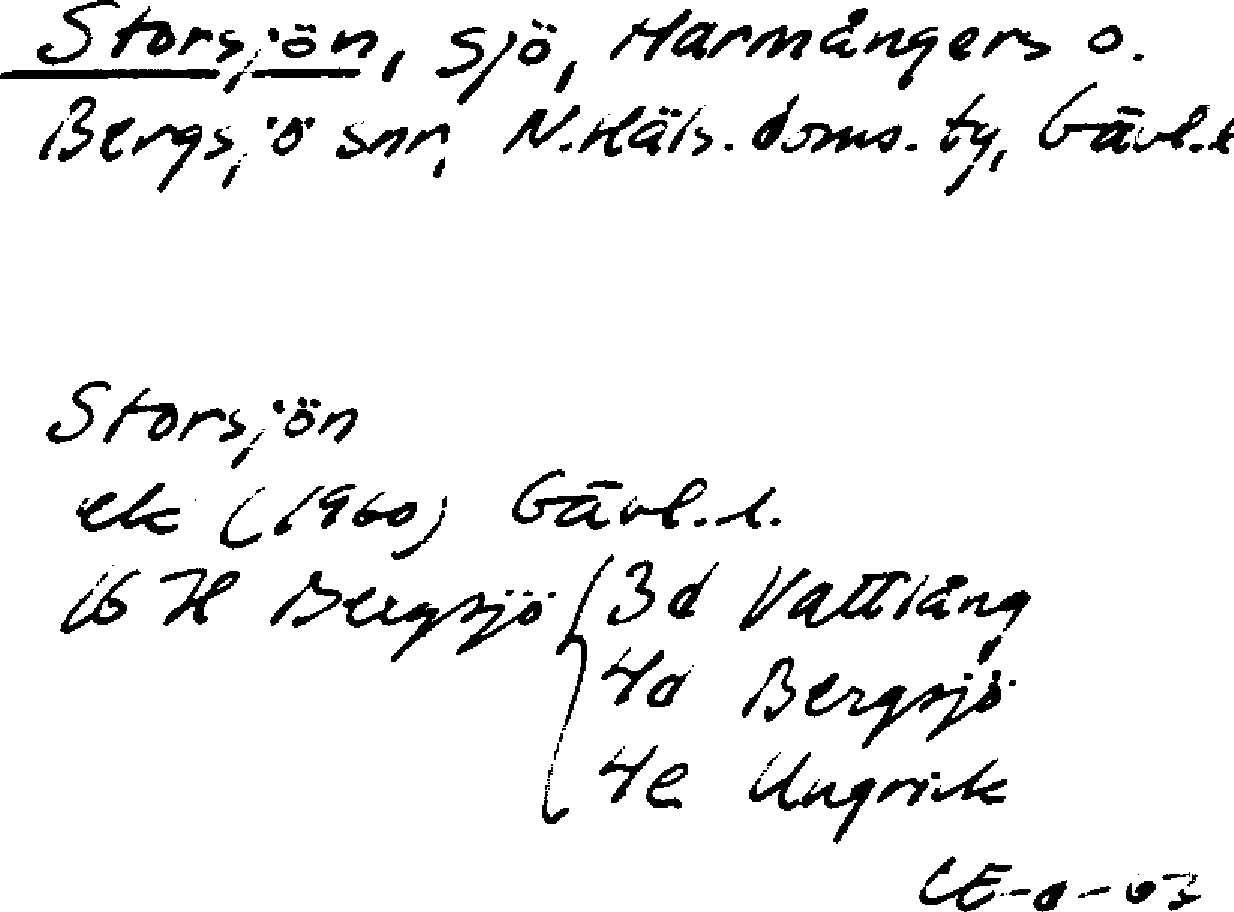 Storsjön, sjö, Harmångers o.
Bergsjö snr, N.Häls. doms. ty, Gävl.l
Storsjön
ek (1960) Gävl.l.
16 H Bergsjö 3d Vattlång
4d Bergsjö
4e Ungvik